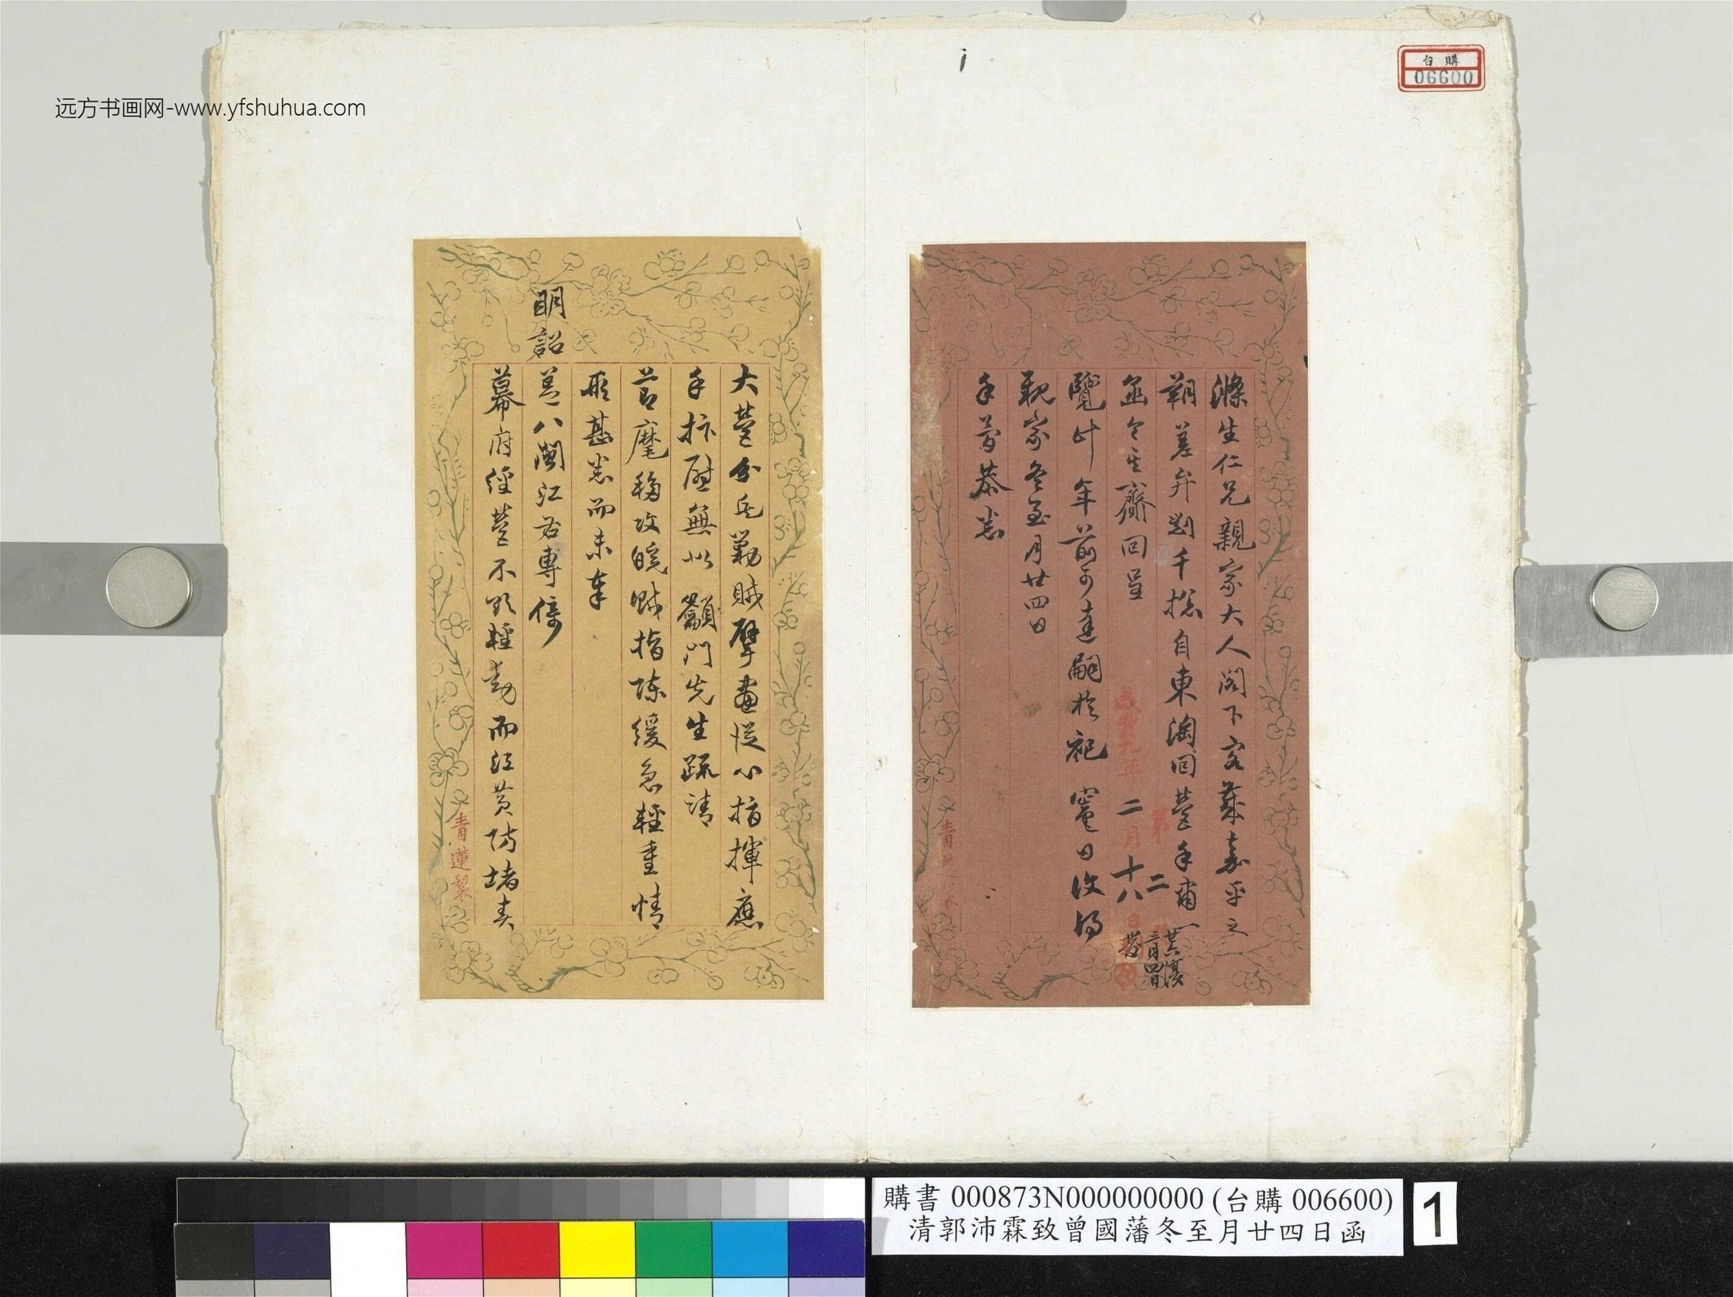 远方书画网-www.yfshuhua.com
台購
06600
滌生仁兄親家大人閣下客歲嘉平之
朔差弁劉千總自東淘回營手肅一
函令其齎回呈
覽計年前可達嗣於祀竈日收得
親家冬至月廿四日
手書恭悉
咸豐九年二月十八日
第二
二月四日
大營分兵剿賊擘畫從心指揮應
手抃慰無似籲門先生疏請
節麾移攻皖賊指陳緩急輕重情
形甚悉而未奉
明詔
蓋八閩江右專倚
幕府經營不欲輕動而江黃防堵責
青蓮製
購書 000873N000000000 (台購 006600)
清郭沛霖致曾國藩冬至月廿四日函
1